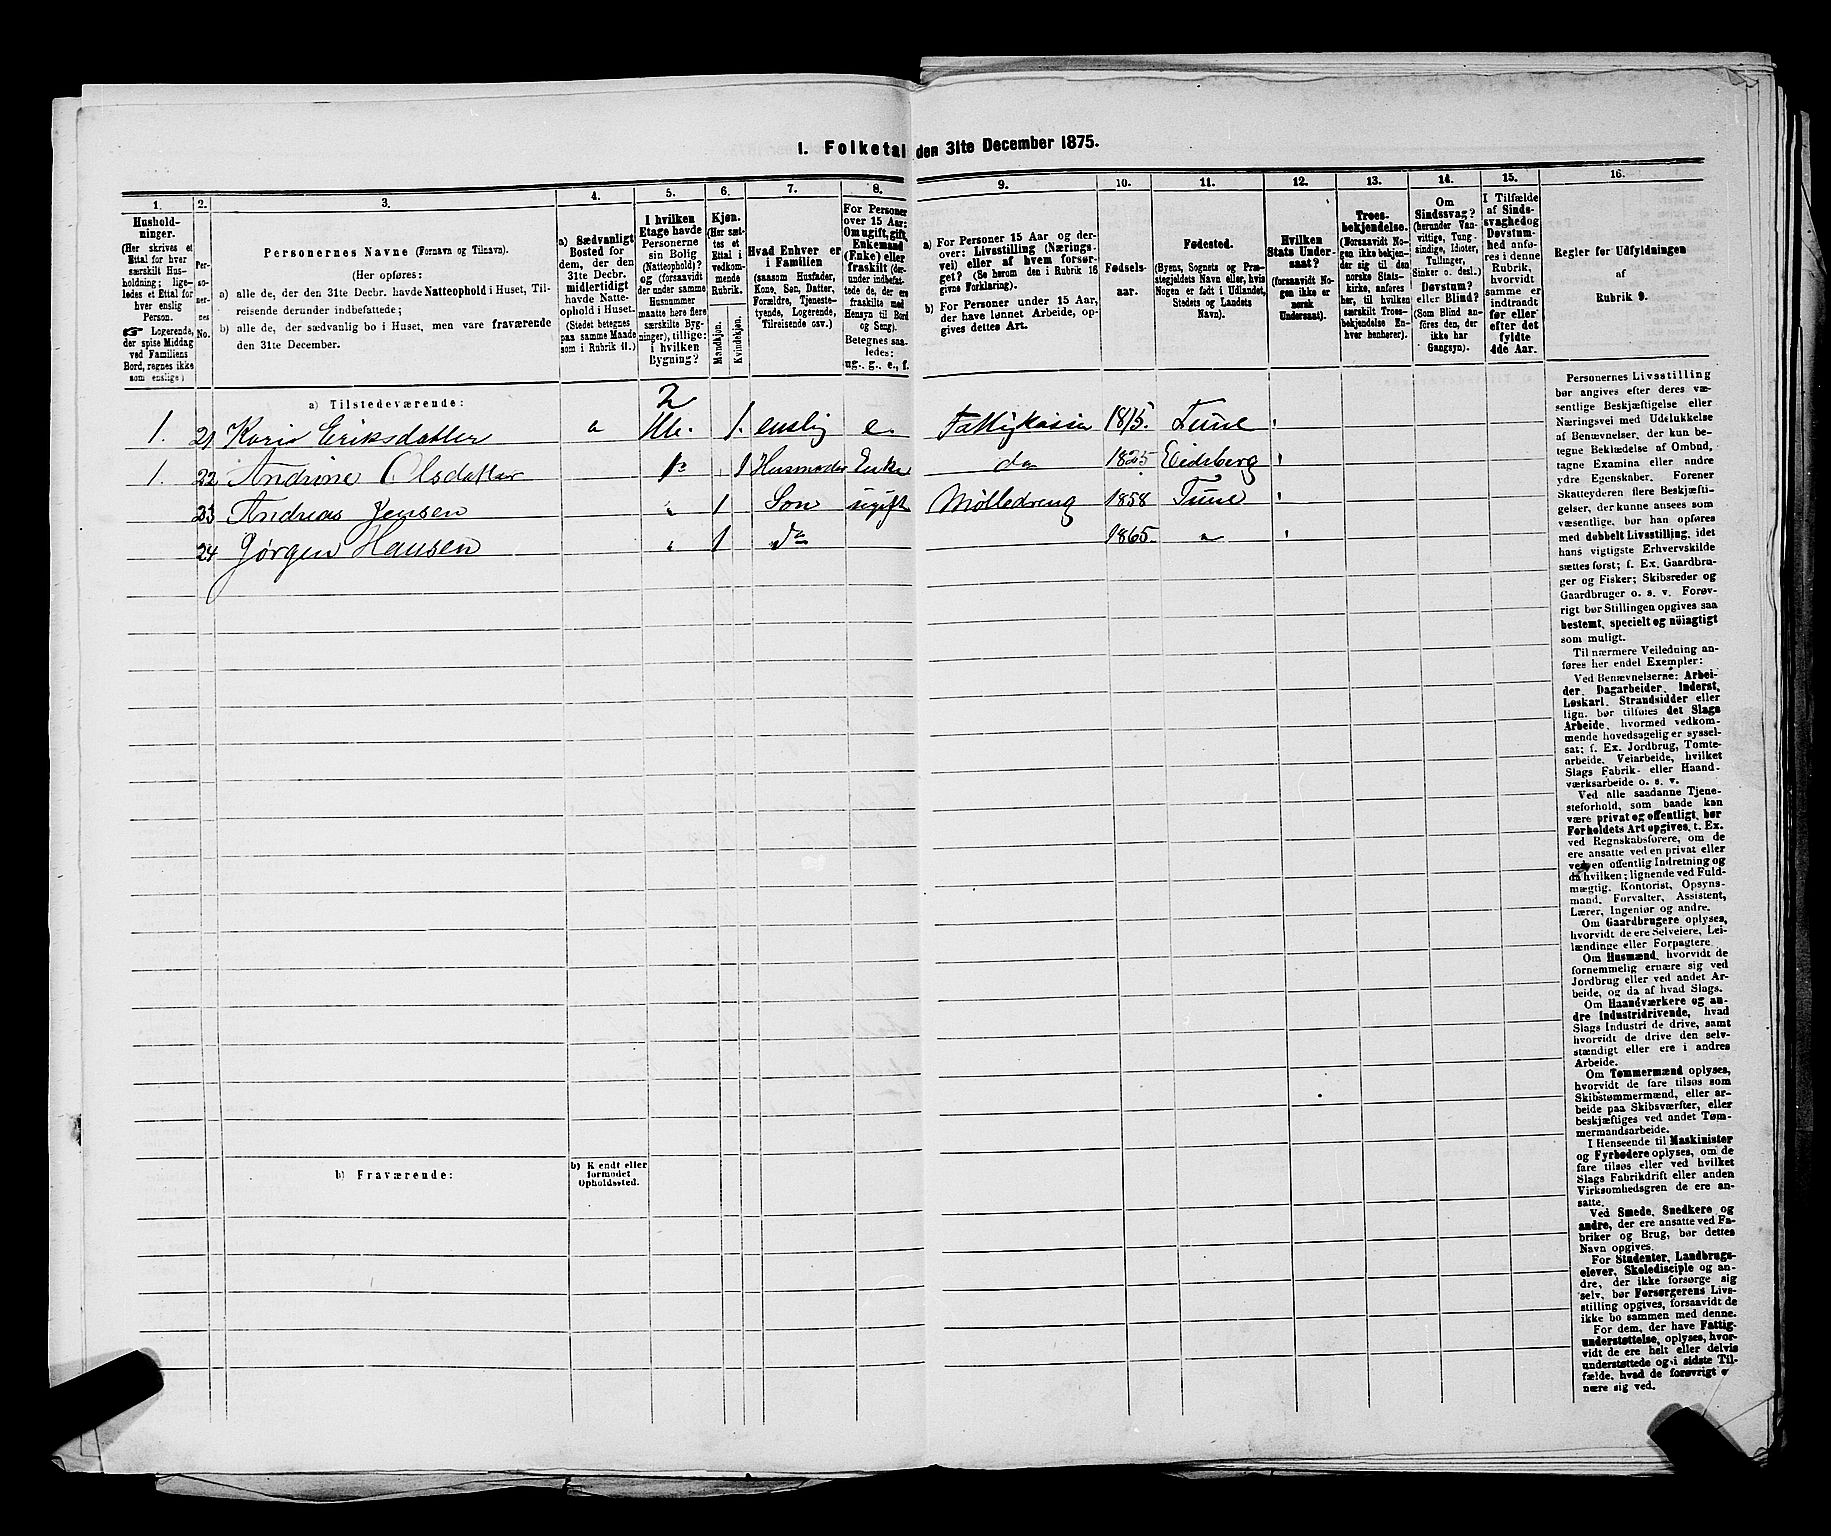 1. Folketal den 31te December 1875.
1. 2. 3. 4. 5. 6. 7. 8. 9. 10. 11. 12. 13. 14. 15. 16.
Hushold-
ninger.
(Her skrives et
Ettal for hver
særskilt Hus-
holdning; lige-
ledes et Ettal for
hver enslig
Person.
☞ Logerende,
der spise Middag
ved Familiens
Bord, regnes ikke
som enslige)
Per-
so-
ner-
nes
No.
Personernes Navne (Fornavn og Tilnavn).
(Her opføres:
a) alle de, der den 31te Decbr. havde Natteophold i Huset, Til-
reisende derunder indbefattede;
b) alle de, der sædvanlig bo i Huset, men vare fraværende
den 31te December.
a) Sædvanligt
Bosted for
dem, der den
31te Decbr.
midlertidigt
havde Natte-
ophold i Huset.
(Stedet betegnes
paa samme Maade
som i Rubrik 11.)
I hvilken
Etage havde
Personerne
sin Bolig
(Natteophold)?
og (forsaavidt
der under samme
Husnummer
maatte høre flere
særskilte Byg-
ninger), tillige:
i hvilken
Bygning?
Kjøn.
(Her sæt-
tes et
Ettal i
vedkom-
mende
Rubrik.
Mandkjøn.
Kvindekjøn.
Hvad Enhver er
i Familien
(saasom Husfader,
Kone, Søn, Datter,
Forældre, Tjeneste-
tyende, Logerende,
Tilreisende osv.)
For Personer
over 15 Aar:
Om ugift, gift,
Enkemand
(Enke) eller
fraskilt (der-
under indbefat-
tede de, der ere
fraskilte med
Hensyn til Bord
og Seng).
Betegnes saa-
ledes:
ug., g., e., f.
a) For Personer 15 Aar og der-
over: Livsstilling (Nærings-
vei) eller af hvem forsør-
get? (Se herom den i Rubrik 16
givne Forklaring).
b) For Personer under 15 Aar,
der have lønnet Arbeide, op-
gives dettes Art.
Fødsels-
aar.
Fødested.
(Byens, Sognets og Præ-
stegjældets Navn eller, hvis
Nogen er født i Udlandet,
Stedets og Landets
Navn).
Hvilken
Stats Under-
saat?
(forsaavidt No-
gen ikke er
norsk
Undersaat).
Troes-
bekjendelse.
(Forsaavidt No-
gen ikke bekjen-
der sig til den
norske Stats-
kirke, anføres
her, til hvilken
særskilt Troes-
bekjendelse En-
hver henhører).
Om
Sindssvag?
(herunder Van-
vittige, Tung-
sindige, Idioter,
Tullinger,
Sinker o. desl.)
Døvstum?
eller Blind?
(Som Blind an-
føres den, der
ikke har
Gangsyn).
I Tilfælde
af Sinds-
svaghed og
Døvstum-
hed anfø-
res i denne
Rubrik,
hvorvidt
samme er
indtraadt
før eller
efter det
fyldte
4de Aar.
Regler for Udfyldningen
af
Rubrik 9.
a) Tilstedeværende:
2
1. 21 Karis Eriksdatter a 1. enslig e. Fattigkassen 1815. Tune
1. 22 Andrine Olsdatter 1 Husmoder Enke do 1825 Eidsberg
23 Andreas Jensen 1 Søn ugift Mølledreng 1858 Tune
24 Jørgen Hansen 1 do 1865.
b) Fraværende:
b) Kjendt eller
formodet
Opholdssted.
Personernes Livsstilling
bør angives efter deres væ-
sentlige Beskjæftigelse eller
Næringsvei med Udelukkelse
af Benævnelser, der kun be-
tegne Beklædelse af Ombud,
tagne Examina eller andre
ydre Egenskaber. Forener
Skatteyderen flere Beskjæfti-
gelser, der kunne ansees som
væsentlige, bør han opføres
med dobbelt Livsstilling, idet
hans vigtigste Erhvervskilde
sættes først; f. Ex. Gaardbru-
ger og Fisker; Skibsreder og
Gaardbruger o. s. v. Forøv-
rigt bør Stillingen opgives saa
bestemt, specielt og nøiagtigt
som muligt.
Til nærmere Veiledning an-
føres her endel Exempler:
Ved Benævnelserne: Arbei-
der, Dagarbeider, Inderst,
Løskarl, Strandsidder eller
lign. bør tilføies det Slags
Arbeide, hvormed vedkom-
mende hovedsagelig er syssel-
sat; f. Ex. Jordbrug, Tomte-
arbeide, Veiarbeide, hvilket
Slags Fabrik- eller Haand-
værksarbeide o. s. v.
Ved alle saadanne Tjene-
steforhold, som baade kan
være privat og offentligt, bør
Forholdets Art opgives, t. Ex.
ved Regnskabsførere, om de
ere ansatte ved en privat eller
ved en offentlig Indretning og
da hvilken; lignende ved Fuld-
mægtig, Kontorist, Opsyns-
mand, Forvalter, Assistent,
Lærer, Ingeniør og andre.
Om Gaardbrugere oplyses,
hvorvidt de ere Selveiere, Lei-
lændinge eller Forpagtere.
Om Husmænd, hvorvidt de
fornemmelig ernære sig ved
Jordbrug eller ved andet Ar-
beide, og da af hvad Slags.
Om Haandværkere og an-
dre Industridrivende, hvad
Slags Industri de drive, samt
hvorvidt de drive den selv-
stændigt eller ere i andres
Arbeide.
Om Tømmermænd oplyses,
hvorvidt de fare tilsøs som
Skibstømmermænd, eller ar-
beide paa Skibsværfter, eller
beskjæftiges ved andet Tøm-
mermandsarbeide.
I Henseende til Maskinister
og Fyrbødere oplyses, om de
fare tilsøs eller ved hvilket
Slags Fabrikdrift eller anden
Virksomhedsgren de ere an-
satte.
Ved Smede, Snedkere og
andre, der ere ansatte ved Fa-
briker og Brug, bør dettes
Navn opgives.
For Studenter, Landbrugs-
elever, Skoledisciple og an-
dre, der ikke forsørge sig
selv, bør Forsørgerens Livs-
stilling opgives, forsaavidt de
ikke bo sammen med denne.
For dem, der have Fattig-
understøttelse, oplyses, hvor-
vidt de ere helt eller delvis
understøttede og i sidste Til-
fælde, hvad de forøvrigt er-
nære sig ved.